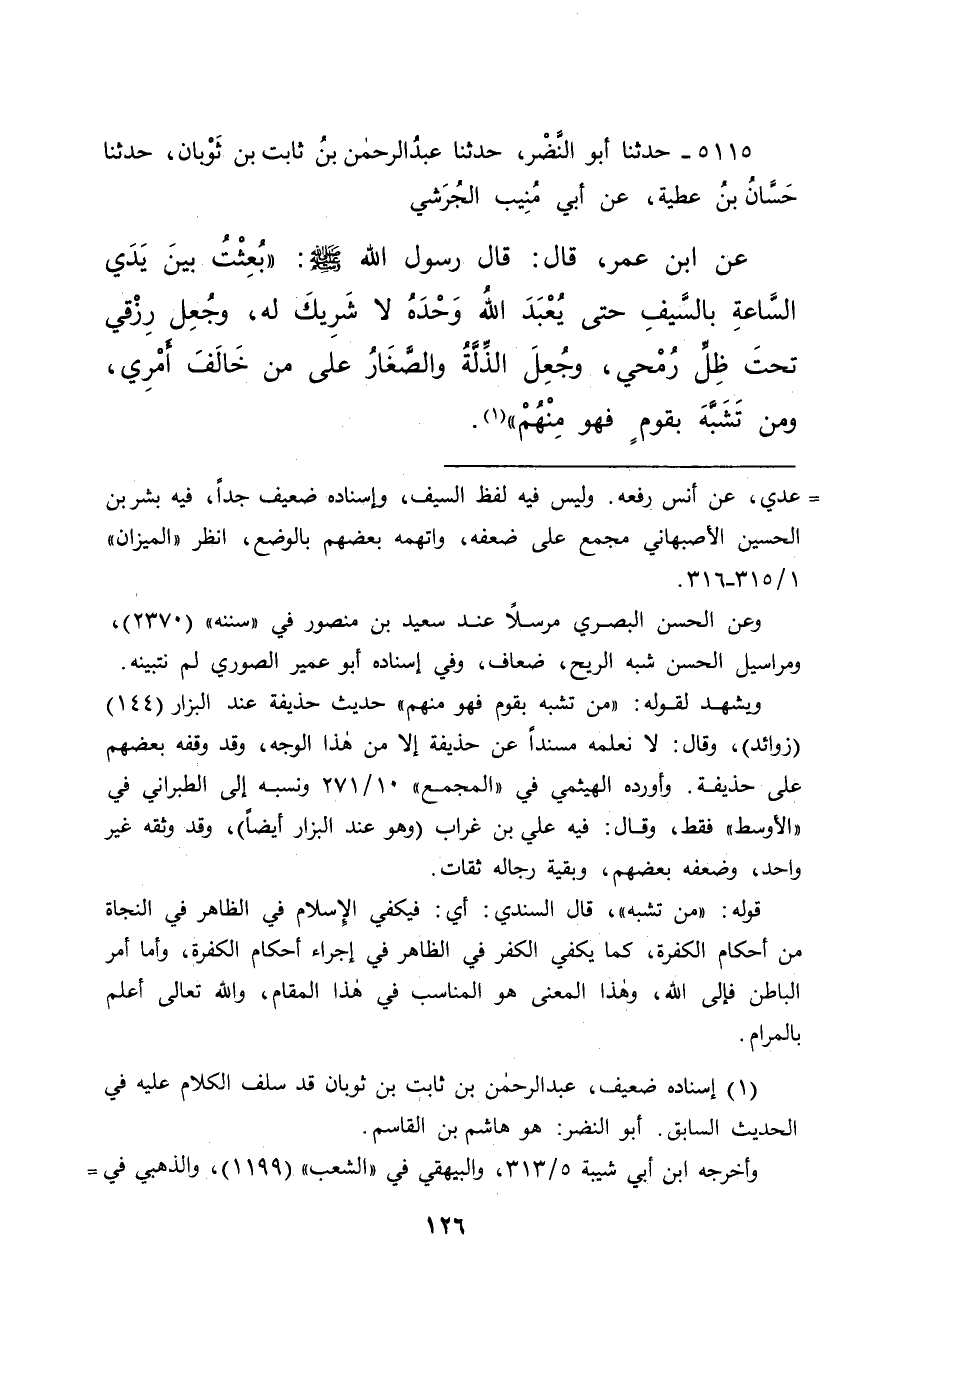 ٥١١٥ ـ حدثنا أبو النَّضْر، حدثنا عبدُالرحمٰن بنُ ثابت بن ثَوْبان، حدثنا
حَسَّانُ بنُ عطية، عن أبي مُنِيب الجُرَشي
عن ابن عمر، قال: قال رسول الله ﷺ: «بُعِثْتُ بينَ يَدَي
السَّاعةِ بالسَّيفِ حتى يُعْبَدَ اللهُ وَحْدَهُ لا شَرِيكَ له، وجُعِل رِزْقي
تحتَ ظِلِّ رُمْحي، وجُعِلَ الذِّلَّةُ والصَّغَارُ على من خَالَفَ أَمْرِي،
ومن تَشَبَّهَ بقومٍ فهو مِنْهُمْ»(١).
= عدي، عن أنس رفعه. وليس فيه لفظ السيف، وإسناده ضعيف جداً، فيه بشر بن
الحسين الأصبهاني مجمع على ضعفه، واتهمه بعضهم بالوضع، انظر «الميزان»
٣١٥/١-٣١٦.
وعن الحسن البصري مرسلاً عند سعيد بن منصور في «سننه» (٢٣٧٠)،
ومراسيل الحسن شبه الريح، ضعاف، وفي إسناده أبو عمير الصوري لم نتبينه.
ويشهد لقوله: «من تشبه بقوم فهو منهم» حديث حذيفة عند البزار (١٤٤)
(زوائد)، وقال: لا نعلمه مسنداً عن حذيفة إلا من هٰذا الوجه، وقد وقفه بعضهم
على حذيفة. وأورده الهيثمي في «المجمع» ٢٧١/١٠ ونسبه إلى الطبراني في
«الأوسط» فقط، وقال: فيه علي بن غراب (وهو عند البزار أيضاً)، وقد وثقه غير
واحد، وضعفه بعضهم، وبقية رجاله ثقات.
قوله: «من تشبه»، قال السندي: أي: فيكفي الإِسلام في الظاهر في النجاة
من أحكام الكفرة، كما يكفي الكفر في الظاهر في إجراء أحكام الكفرة، وأما أمر
الباطن فإلى الله، وهٰذا المعنى هو المناسب في هٰذا المقام، والله تعالى أعلم
بالمرام.
(١) إسناده ضعيف، عبدالرحمٰن بن ثابت بن ثوبان قد سلف الكلام عليه في
الحديث السابق. أبو النضر: هو هاشم بن القاسم.
وأخرجه ابن أبي شيبة ٣١٣/٥، والبيهقي في «الشعب» (١١٩٩)، والذهبي في =
١٢٦